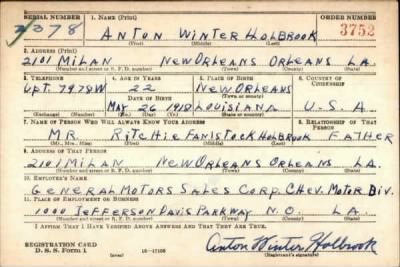 SERIAL NUMBER 1. NAME (Print) ORDER NUMBER
2378 ANTON WINTER HOLBROOK 3752
(First) (Middle) (Last)
2. ADDRESS (Print)
2101 MILAN NEW ORLEANS ORLEANS LA.
(Number and street or R. F. D. number) (Town) (County) (State)
3. TELEPHONE 4. AGE IN YEARS 5. PLACE OF BIRTH 6. COUNTRY OF CITIZENSHIP
Upt. 7978W 22 NEW ORLEANS
DATE OF BIRTH (Town or county)
MAY 26 1918 LOUISIANA U.S.A.
(Exchange) (Number) (Mo.) (Day) (Yr.) (State or country)
7. NAME OF PERSON WHO WILL ALWAYS KNOW YOUR ADDRESS 8. RELATIONSHIP OF THAT PERSON
MR. RITCHIE HOLBROOK FATHER
(Mr., Mrs., Miss) (First) (Middle) (Last)
9. ADDRESS OF THAT PERSON
2101 MILAN NEW ORLEANS ORLEANS LA.
(Number and street or R. F. D. number) (Town) (County) (State)
10. EMPLOYER'S NAME
GENERAL MOTORS SALES CORP. CHEV. MOTOR DIV.
11. PLACE OF EMPLOYMENT OR BUSINESS
1000 JEFFERSON DAVIS PARKWAY N.O. LA.
(Number and street or R. F. D. number) (Town) (County) (State)
I AFFIRM THAT I HAVE VERIFIED ABOVE ANSWERS AND THAT THEY ARE TRUE.
REGISTRATION CARD
D. S. S. Form 1 Anton Winter Holbrook
(Registrant's signature)